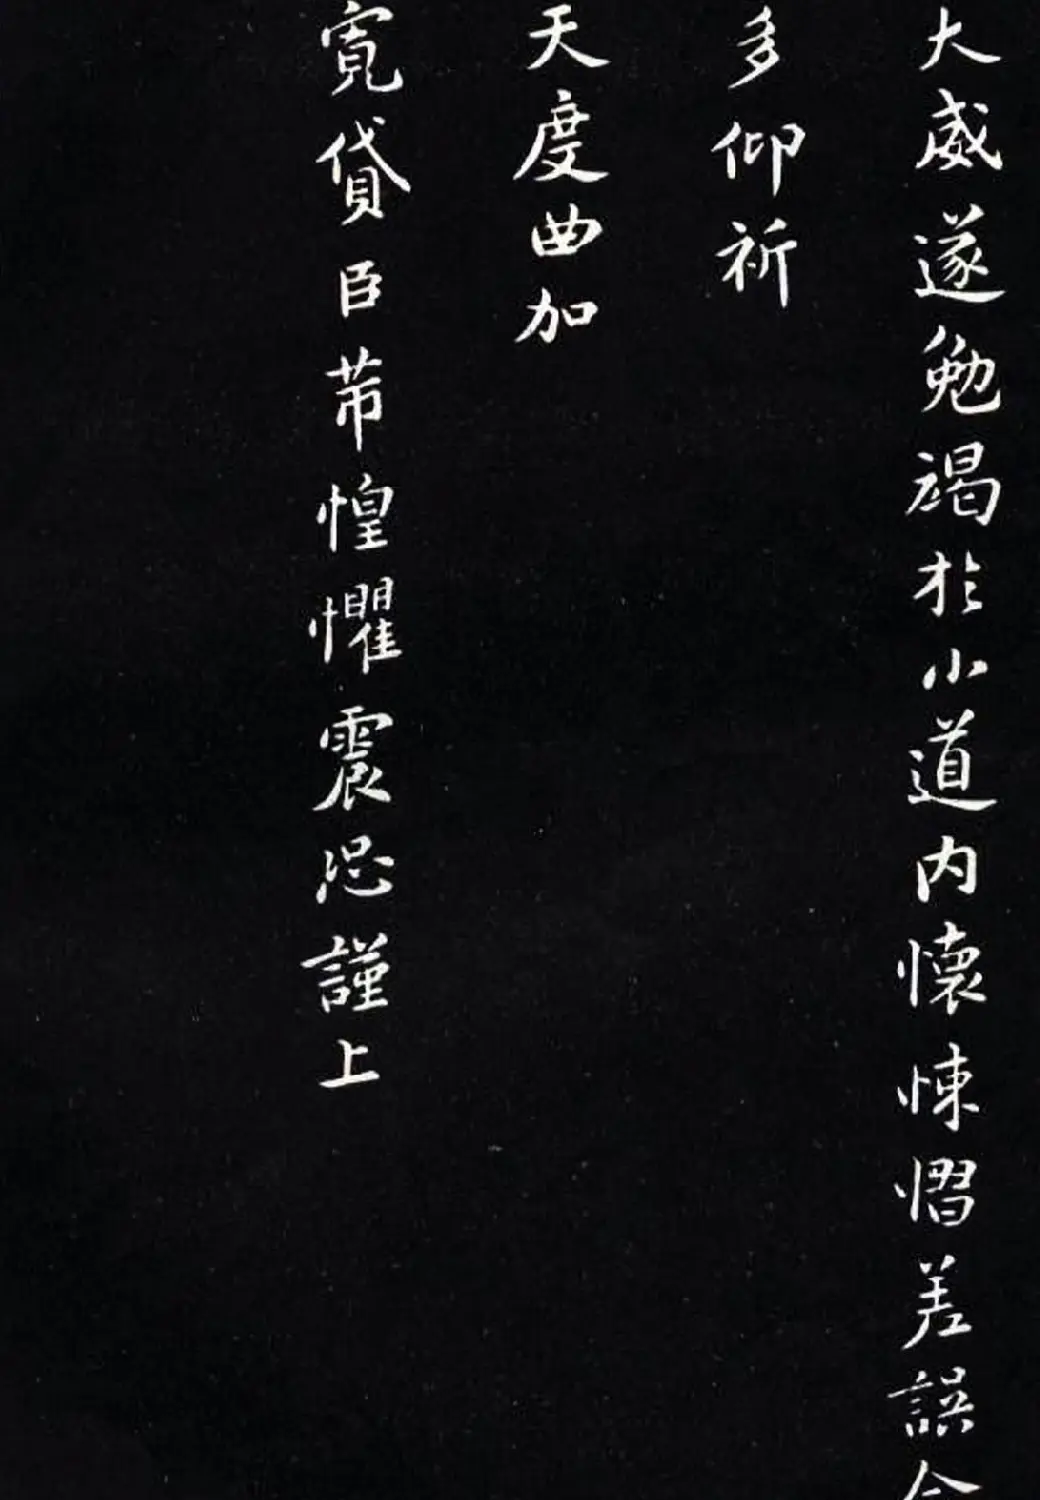 大威遂勉竭於小道内懷悚慴差誤
多仰祈
天度曲加
寛貸臣芾惶懼震恐謹上